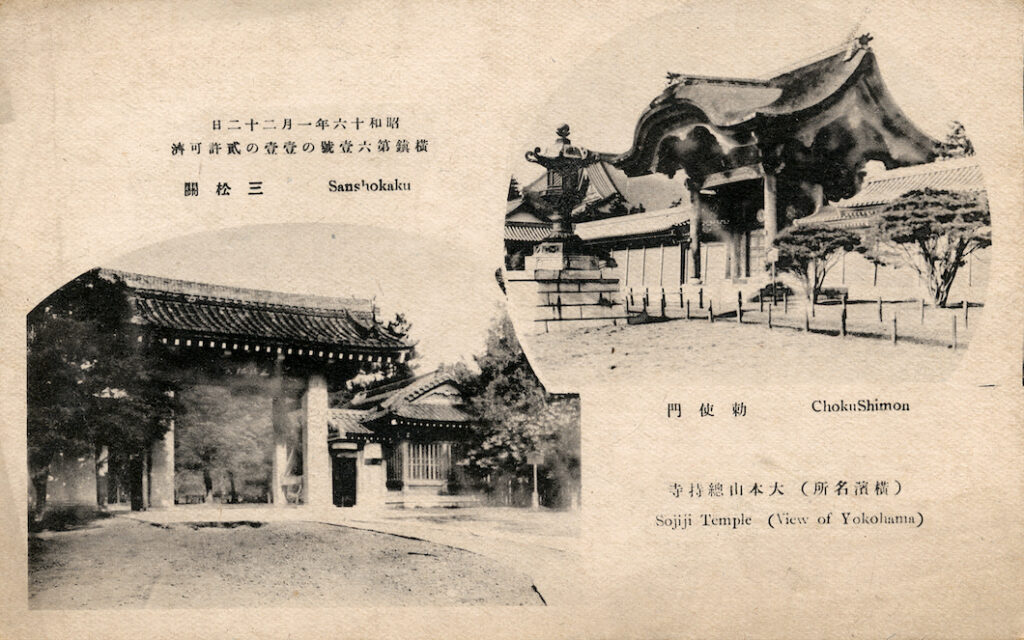 昭和十六年一月二十二日
橫鎮第六壹號の壹壹の貳許可濟
三松關 Sanshokaku
勅使門 ChokuShimon
(橫濱名所) 大本山總持寺
Sojiji Temple (View of Yokohama)